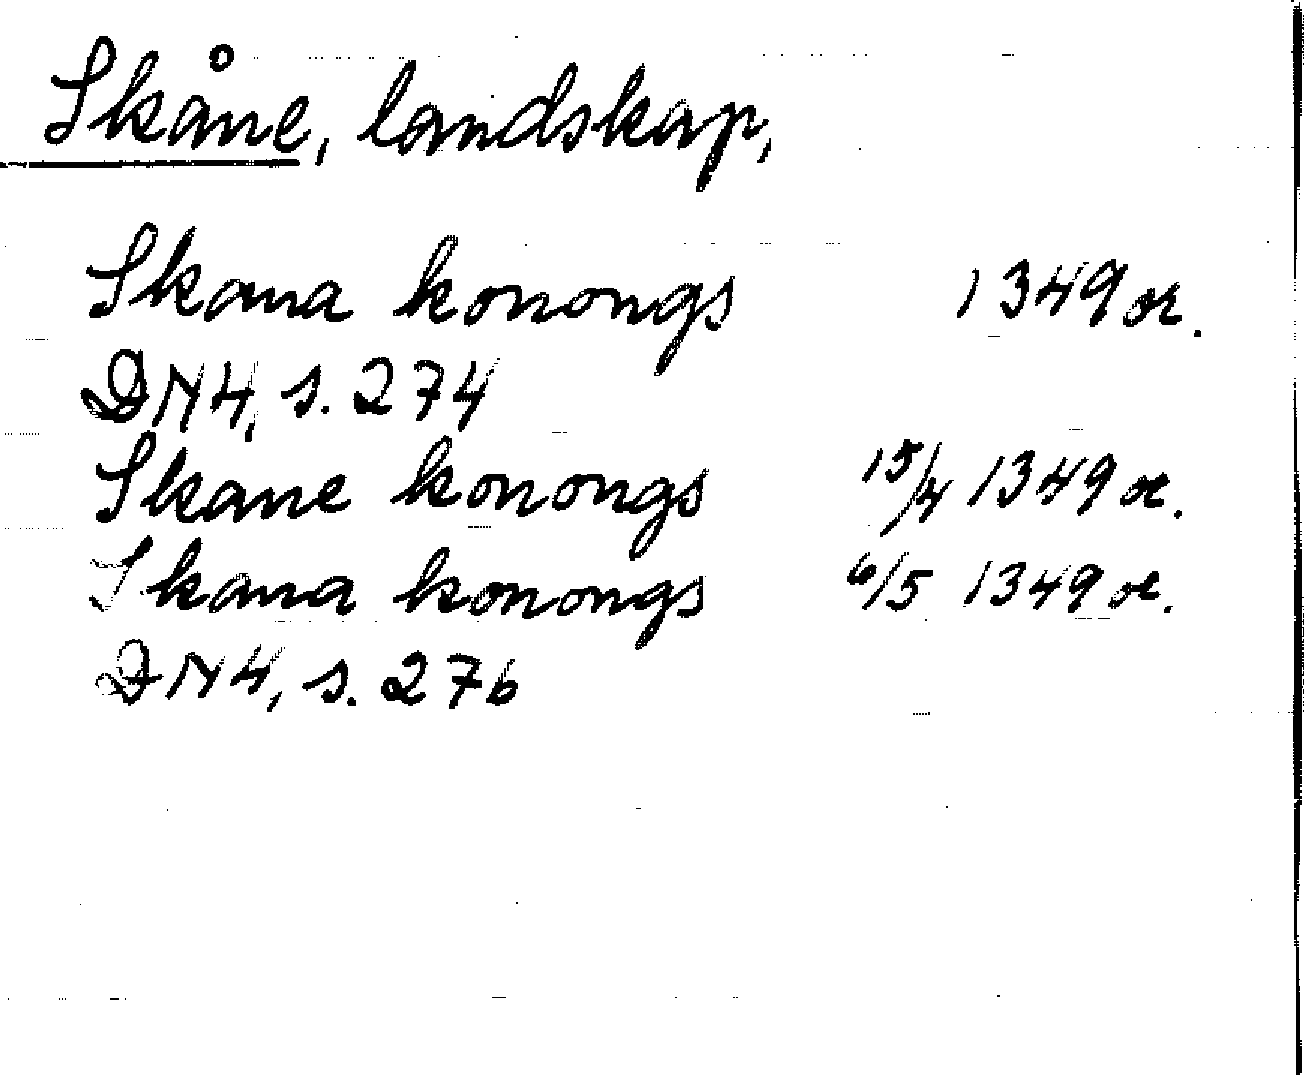 Skåne, landskap,
Skana konongs 1349 or.
DN4, s. 274
Skane konongs 15/4 1349 or.
Skana konongs 6/5 1349 or.
DN4, s. 276